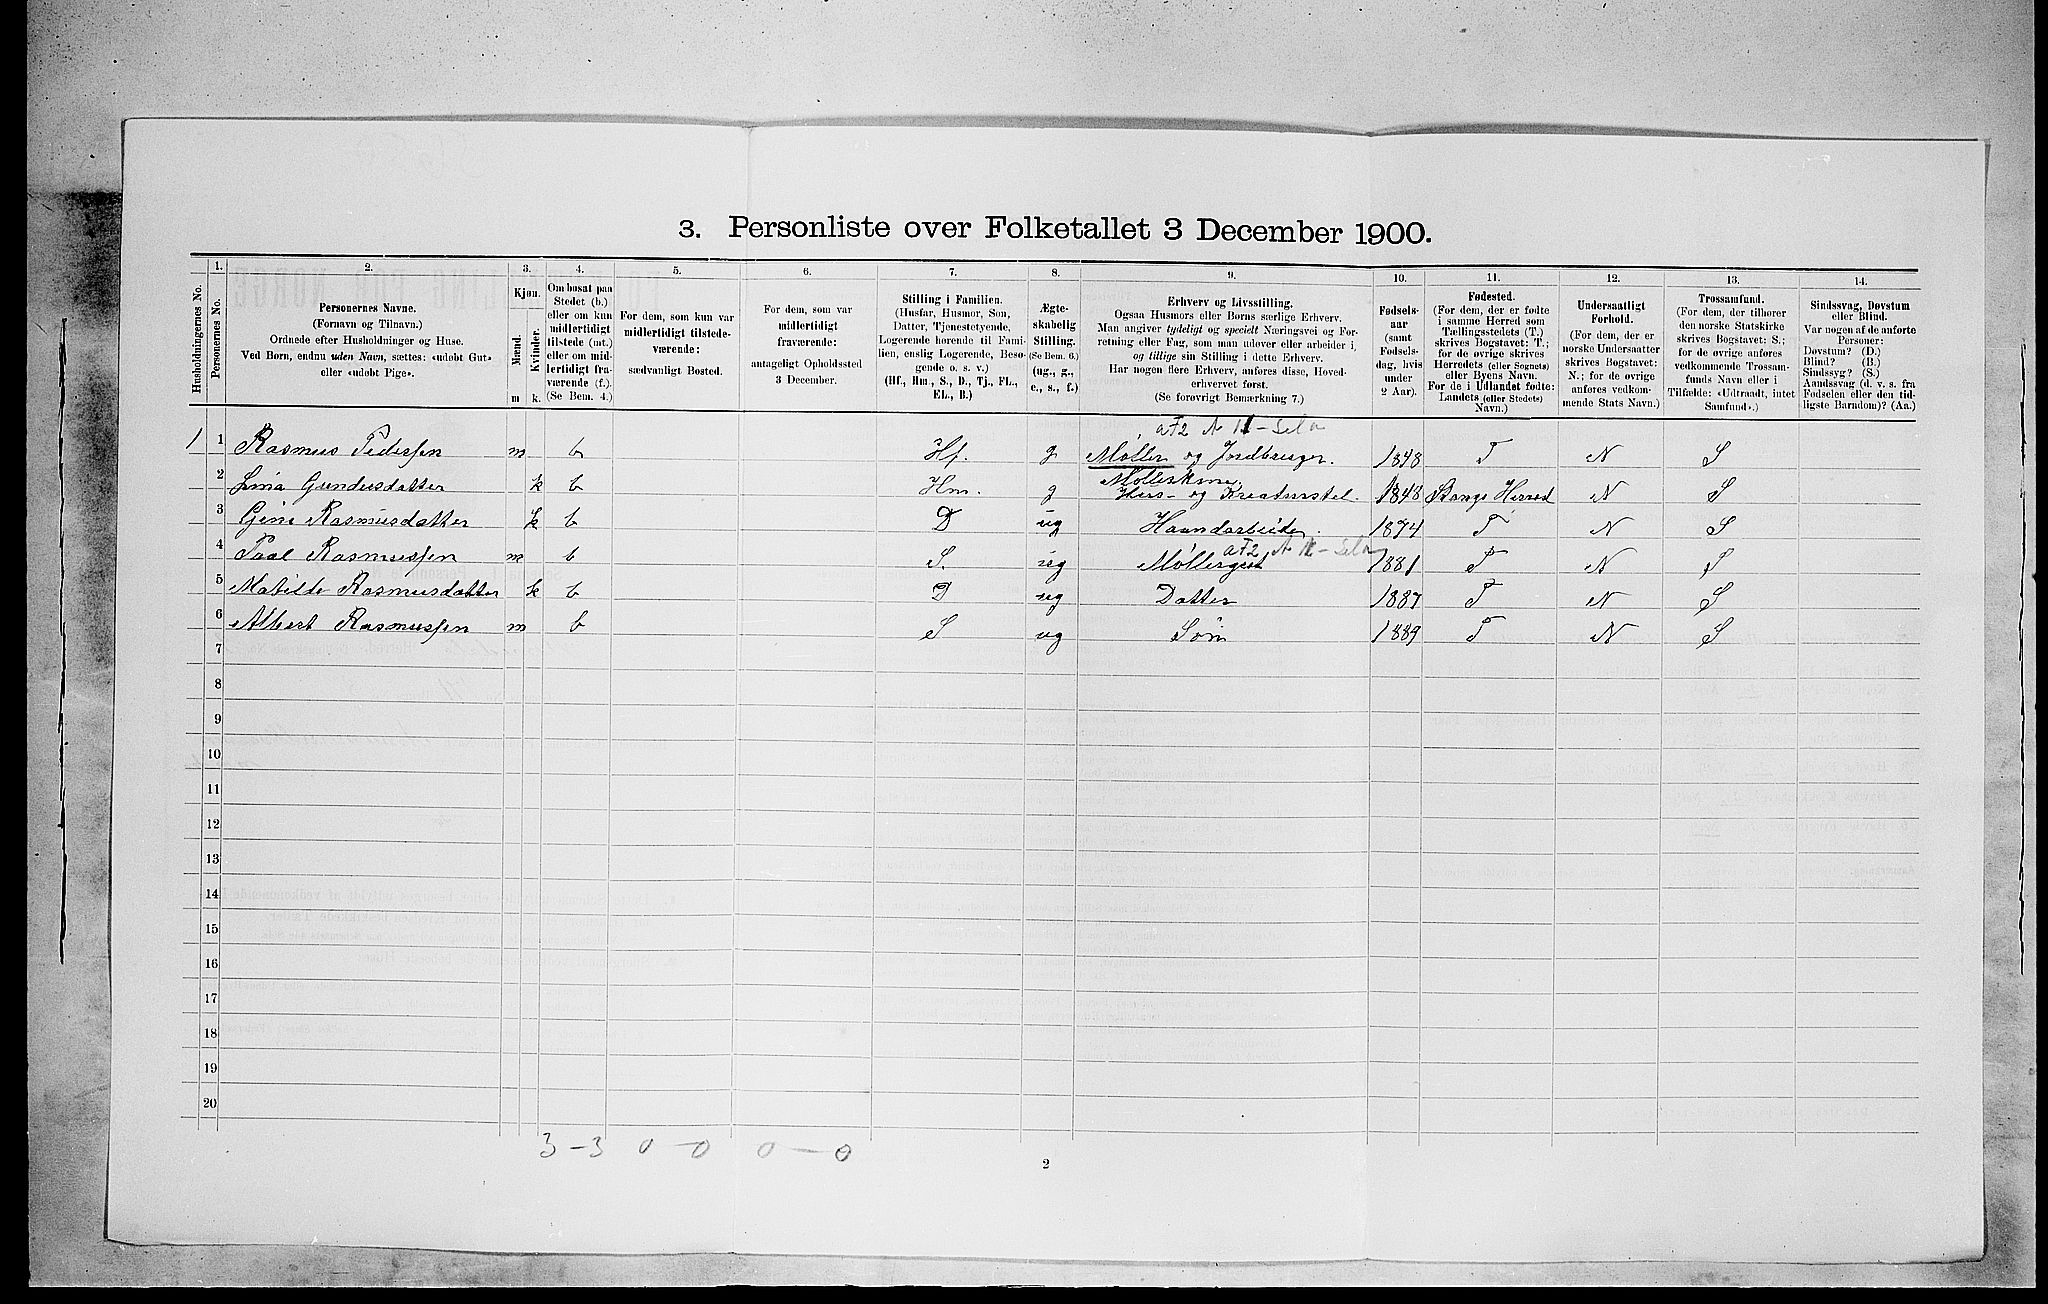 3. Personliste over Folketallet 3 December 1900.
Husholdningernes No.
1.
Personernes No.
2.
Personernes Navne.
(Fornavn og Tilnavn.)
Ordnede efter Husholdninger og Huse.
Ved Børn, endnu uden Navn, sættes: «udøbt Gut»
eller «udøbt Pige».
3.
Kjøn.
Mænd.
Kvinder.
m k.
4.
Om bosat paa
Stedet (b.)
eller om kun
midlertidigt
tilstede (mt.)
eller om mid-
lertidigt fra-
værende (f.).
(Se Bem. 4.)
5.
For dem, som kun var
midlertidigt tilstede-
værende:
sædvanligt Bosted.
6.
For dem, som var
midlertidigt
fraværende:
antageligt Opholdssted
3 December.
7.
Stilling i Familien.
(Husfar, Husmor, Søn,
Datter, Tjenestetyende,
Logerende hørende til Fami-
lien, enslig Logerende, Besø-
gende o. s. v.)
(Hf., Hm., S., D., Tj., FL.,
EL., B.)
8.
Ægte-
skabelig
Stilling.
(Se Bem. 6.)
(ug., g.,
e., s., f.)
9.
Erhverv og Livsstilling.
Ogsaa Husmors eller Børns særlige Erhverv.
Man angiver tydeligt og specielt Næringsvei og For-
retning eller Fag, som man udøver eller arbeider i,
og tillige sin Stilling i dette Erhverv.
Har nogen flere Erhverv, anføres disse, Hoved-
erhvervet først.
(Se forøvrigt Bemærkning 7.)
10.
Fødsels-
aar
(samt
Fødsels-
dag, hvis
under
2 Aar).
11.
Fødested.
(For dem, der er fødte
i samme Herred som
Tællingsstedets (T.)
skrives Bogstavet: T.;
for de øvrige skrives
Herredets (eller Sognets)
eller Byens Navn.
For de i Udlandet fødte:
Landets (eller Stedets)
Navn.)
12.
Undersaatligt
Forhold.
(For dem, der er
norske Undersaatter
skrives Bogstavet:
N.; for de øvrige
anføres vedkom-
mende Stats Navn.)
13.
Trossamfund.
(For dem, der tilhører
den norske Statskirke
skrives Bogstavet: S.;
for de øvrige anføres
vedkommende Trossam-
funds Navn eller i
Tilfælde: «Udtraadt, intet
Samfund».)
14.
Sindssvag, Døvstum
eller Blind.
Var nogen af de anførte
Personer:
Døvstum? (D.)
Blind? (B.)
Sindssyg? (S.)
Aandssvag (d. v. s. fra
Fødselen eller den tid-
ligste Barndom)? (Aa.)
1 1 Rasmus Pedersen m b Hf. g Møller og Jordbruger. 1848 T N S
2 Lina Gundersdatter k b Hm. g Hus- og Kreaturstel. 1848 Stange Herred N S
3 Gina Rasmusdatter k b D ug Haandarbeide. 1874 T N S
4 Paal Rasmussen m b S. ug Møllergut 1881 T N S
5 Mathilde Rasmusdatter k b D ug Datter 1887 T N S
6 Albert Rasmussen m b S ug Søn 1889 T N S
7
8
9
10
11
12
13
14
15
16
17
18
19
20
3-3 0-0 0-0
2